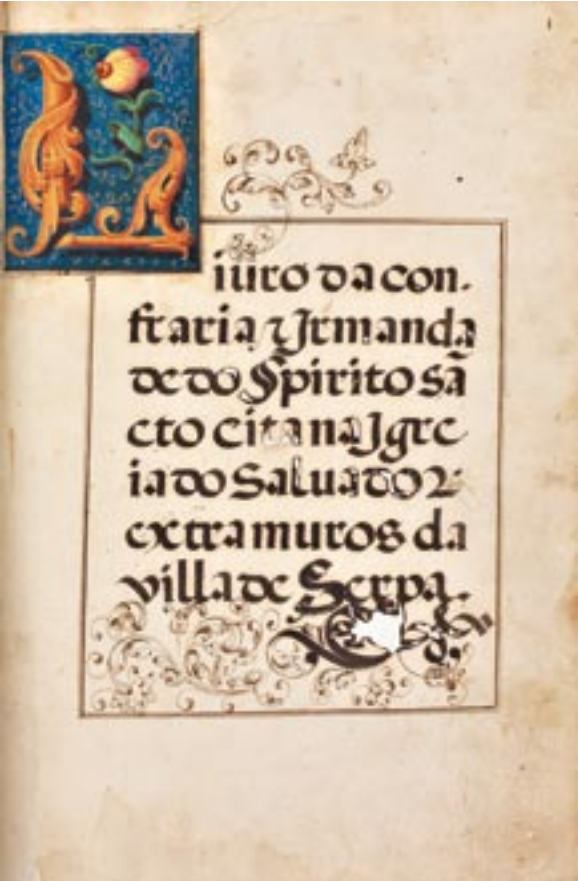 1
Liuro da con-
fraria & Jrmanda
de do Spirito sã
cto cita na Jgre
ia do Saluador
extra muros da
villa de Serpa.